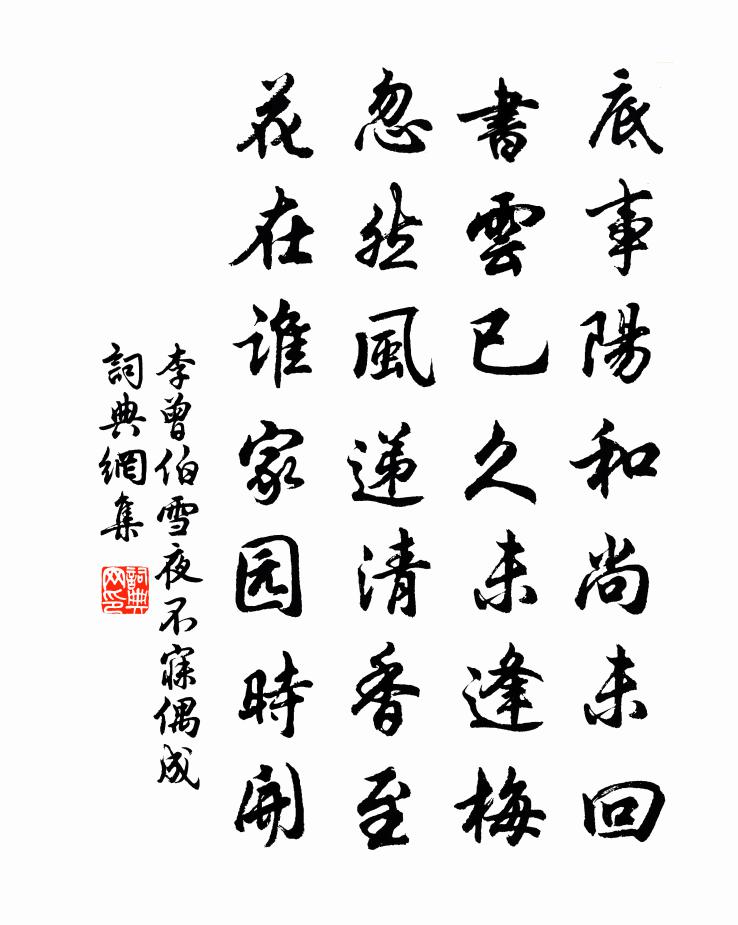 底事陽和尚未回
書雲已久未逢梅
忽然風递清香至
花在誰家园時開
李曾伯雪夜不寐偶成
詞典網集
詞典网印